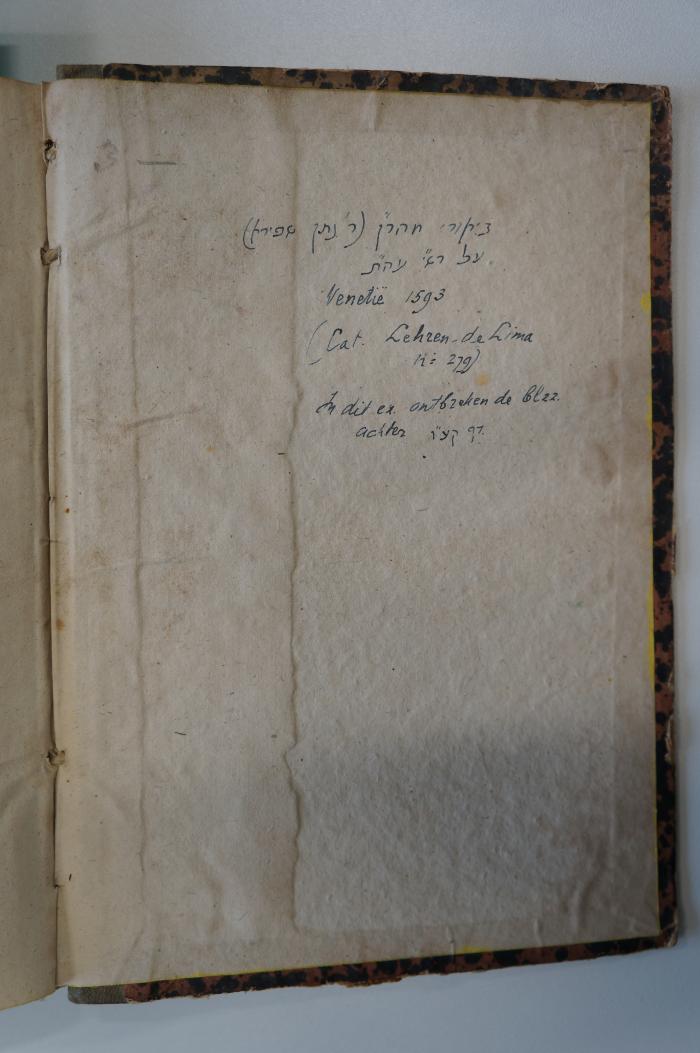 ביאורי מהר״ן (ר׳ נתן שפירא)
על רש״י עה״ת.
Venetië 1593
(Cat. Lehren-de Lima
N: 279)
In dit ex. ontbreken de blzz.
achter דף קע״ו.